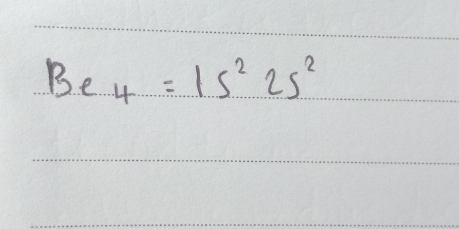 Be₄ = 1s² 2s²